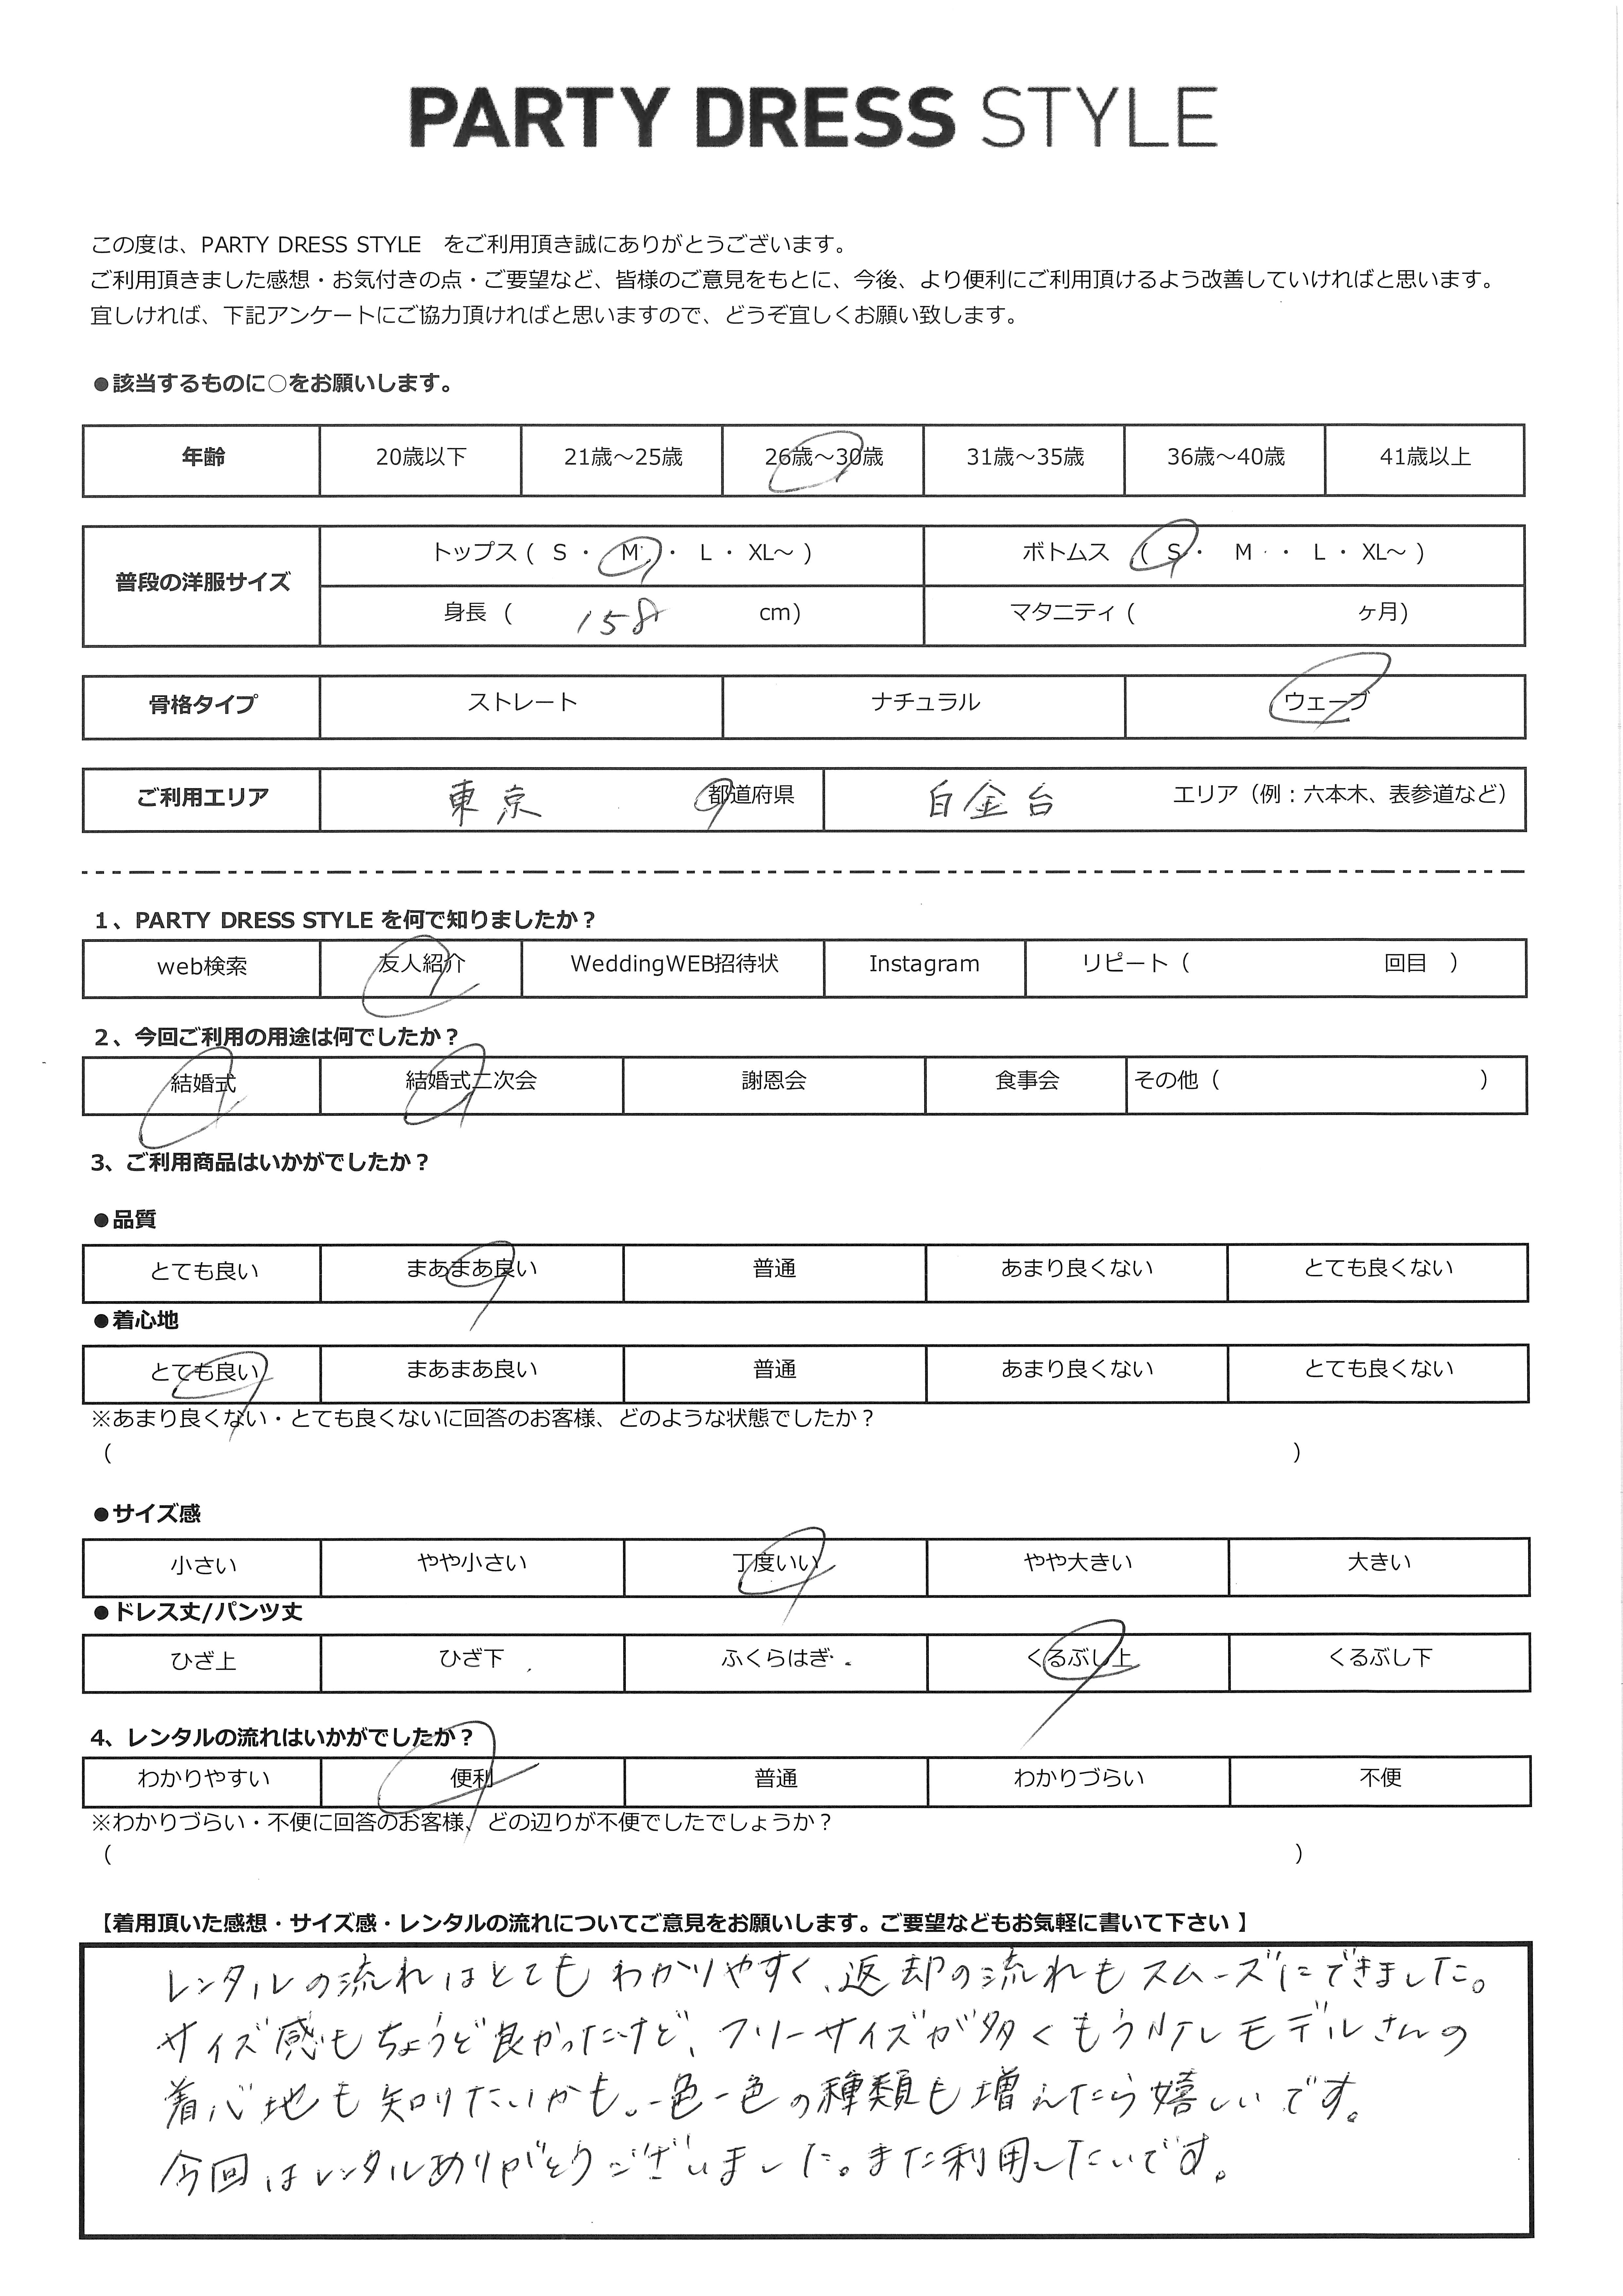 PARTY DRESS STYLE
この度は、PARTY DRESS STYLE　をご利用頂き誠にありがとうございます。
ご利用頂きました感想・お気付きの点・ご要望など、皆様のご意見をもとに、今後、より便利にご利用頂けるよう改善していければと思います。
宜しければ、下記アンケートにご協力頂ければと思いますので、どうぞ宜しくお願い致します。
●該当するものに○をお願いします。
年齢 20歳以下 21歳～25歳 26歳～30歳 31歳～35歳 36歳～40歳 41歳以上
普段の洋服サイズ トップス ( S ・ M ・ L ・ XL～ ) ボトムス ( S ・ M ・ L ・ XL～ )
身長 ( 158 cm) マタニティ ( ヶ月)
骨格タイプ ストレート ナチュラル ウェーブ
ご利用エリア 東京 都道府県 白金台 エリア（例：六本木、表参道など）
1、PARTY DRESS STYLE を何で知りましたか？
web検索 友人紹介 WeddingWEB招待状 Instagram リピート（ 回目 ）
2、今回ご利用の用途は何でしたか？
結婚式 結婚式二次会 謝恩会 食事会 その他（ ）
3、ご利用商品はいかがでしたか？
●品質
とても良い まあまあ良い 普通 あまり良くない とても良くない
●着心地
とても良い まあまあ良い 普通 あまり良くない とても良くない
※あまり良くない・とても良くないに回答のお客様、どのような状態でしたか？
（ ）
●サイズ感
小さい やや小さい 丁度いい やや大きい 大きい
●ドレス丈/パンツ丈
ひざ上 ひざ下 ふくらはぎ くるぶし上 くるぶし下
4、レンタルの流れはいかがでしたか？
わかりやすい 便利 普通 わかりづらい 不便
※わかりづらい・不便に回答のお客様、どの辺りが不便でしたでしょうか？
（ ）
【着用頂いた感想・サイズ感・レンタルの流れについてご意見をお願いします。ご要望などもお気軽に書いて下さい 】
レンタルの流れはとてもわかりやすく、返却の流れもスムーズにできました。
サイズ感もちょうど良かったけど、フリーサイズが多くもう少しモデルさんの
着心地も知りたいかも。一色一色の種類も増えたら嬉しいです。
今回はレンタルありがとうございました。また利用したいです。